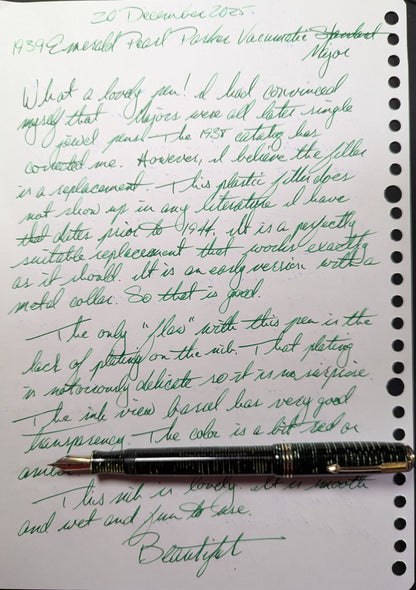 20 December 2025
1939 Emerald Pearl Parker Vacumatic Standard
Major
What a lovely pen! I had convinced
myself that Majors were all later single
jewel pens. The 1938 catalog has
corrected me. However, I believe the filler
is a replacement. This plastic filler does
not show up in any literature I have
that dates prior to 1942. It is a perfectly
suitable replacement that works exactly
as it should. It is an early version with a
metal collar. So that is good.
The only "flaw" with this pen is the
lack of plating on the nib. That plating
is notoriously delicate so it is no surprise.
The ink view barrel has very good
transparency. The color is a bit red or
amber.
This nib is lovely. It is smooth
and wet and fun to use.